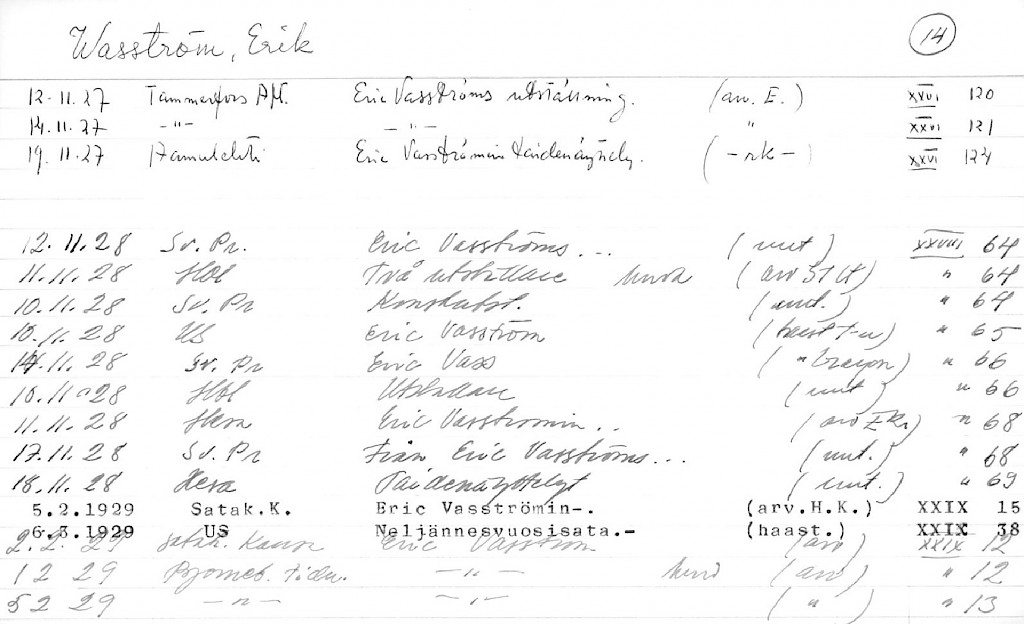 Wasström, Erik 14
12.11.27 Tammerfors Aftl. Eric Vasströms utställning. (arv. E.) XXVI 120
14.11.27 -"- -"- " XXVI 121
19.11.27 Aamulehti Eric Vasströmin taidenäyttely. (-rk-) XXVI 124
12.11.28 Sv. Pr. Eric Vasströms... (uut) XXVIII 64
11.11.28 Hbl Två utställare (arv " 64
10.11.28 Sv. Pr (uut.) " 64
10.11.28 US Eric Vasström (haast T-u) " 65
14.11.28 Sv. Pr Eric Vass " 66
10.11.28 Hbl Utställare (uut) " 66
11.11.28 Hesa Eric Vasströmin.. (arv EKr) " 68
17.11.28 Sv. Pr Från Eric Vasströms... (uut.) " 68
18.11.28 Hesa Taidenäyttelyt (uut.) " 69
5.2.1929 Satak.K. Eric Vasströmin-. (arv.H.K.) XXIX 15
6.3.1929 US Neljännesvuosisata.- (haast.) XXIX 38
2.2.29 Satak. Kansa Eric Vasström (arv) XXIX 12
1 2 29 Björneb. Tidn. -"- (arv) " 12
5 2 29 -"- -"- (") " 13